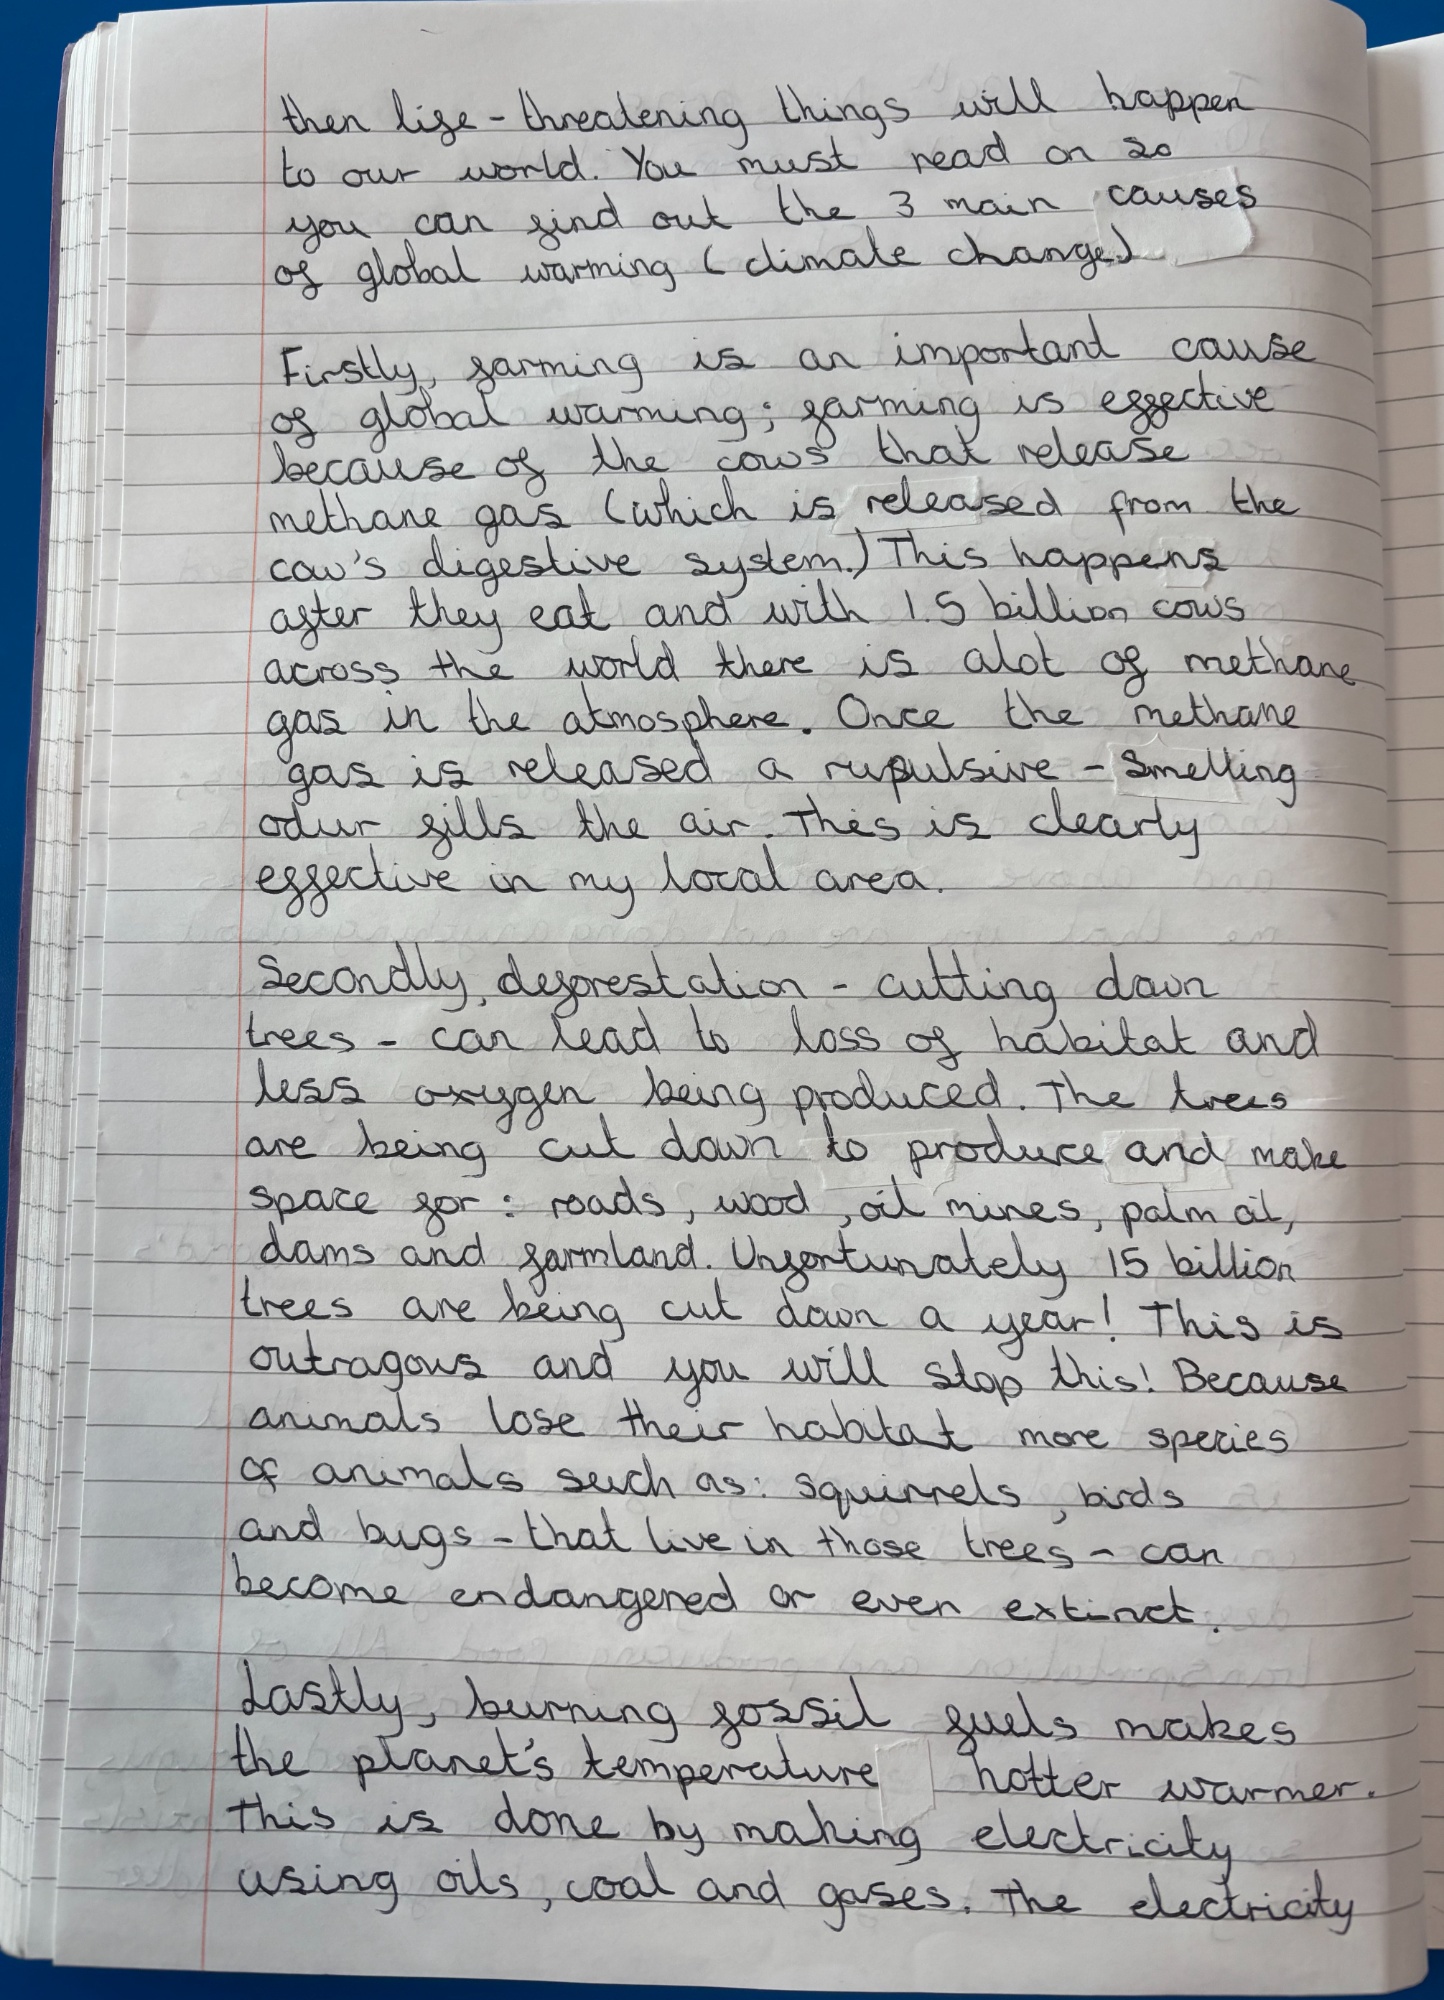 then life-threatening things will happen
to our world. You must read on so
you can find out the 3 main causes
of global warming (climate change)
Firstly, farming is an important cause
of global warming; farming is effective
because of the cows that release
methane gas (which is released from the
cow's digestive system.) This happens
after they eat and with 1.5 billion cows
across the world there is alot of methane
gas in the atmosphere. Once the methane
gas is released a rupulsive - smelling
odur fills the air. This is clearly
effective in my local area.
Secondly, deforestation - cutting down
trees - can lead to loss of habitat and
less oxygen being produced. The trees
are being cut down to produce and make
space for : roads, wood, oil mines, palm oil,
dams and farmland. Unfortunately 15 billion
trees are being cut down a year! This is
outragous and you will stop this! Because
animals lose their habitat more species
of animals such as: squirrels, birds
and bugs - that live in those trees - can
become endangered or even extinct.
Lastly, burning fossil fuels makes
the planet's temperature hotter warmer.
This is done by making electricity
using oils, coal and gases. The electricity